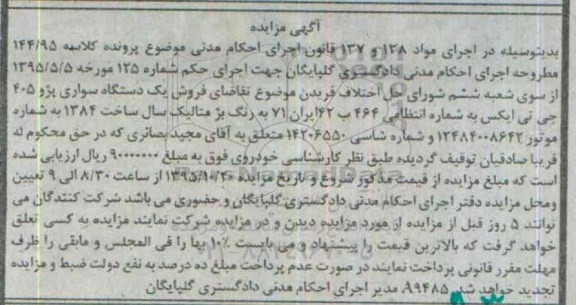 آگهی مزایده
بدینوسیله در اجرای مواد ۱۳۸ و ۱۳۷ قانون اجرای احکام مدنی موضوع پرونده کلاسه ۱۴۴/۹۵
مطروحه اجرای احکام مدنی دادگستری گلپایگان جهت اجرای حکم شماره ۱۲۵ مورخه ۱۳۹۵/۵/۵
از سوی شعبه ششم شورای حل اختلاف فریدن موضوع تقاضای فروش یک دستگاه سواری پژو ۴۰۵
جی تی ایکس به شماره انتظامی ۴۶۴ ب ۴۲ ایران ۷۱ به رنگ بژ متالیک سال ساخت ۱۳۸۴ به شماره
موتور ۱۲۴۸۴۰۰۸۶۴۲ و شماره شاسی ۱۴۲۰۶۵۵۰ متعلق به آقای مجید بصائری که در حق محکوم له
فریبا صادقیان توقیف گردیده طبق نظر کارشناسی خودروی فوق به مبلغ ۹۰۰۰۰۰۰۰ ریال ارزیابی شده
است که مبلغ مزایده از قیمت مذکور شروع و تاریخ مزایده ۱۳۹۵/۱۰/۲۰ از ساعت ۸/۳۰ الی ۹ تعیین
ومحل مزایده دفتر اجرای احکام مدنی دادگستری گلپایگان و حضوری می باشد شرکت کنندگان می
توانند ۵ روز قبل از مزایده از مورد مزایده دیدن و در مزایده شرکت نمایند مزایده به کسی تعلق
خواهد گرفت که بالاترین قیمت را پیشنهاد و می بایست ۱۰٪ بها را فی المجلس و مابقی را ظرف
مهلت مقرر قانونی پرداخت نمایند در صورت عدم پرداخت مبلغ ده درصد به نفع دولت ضبط و مزایده
تجدید خواهد شد. ۸۹۴۸۵ مدیر اجرای احکام مدنی دادگستری گلپایگان